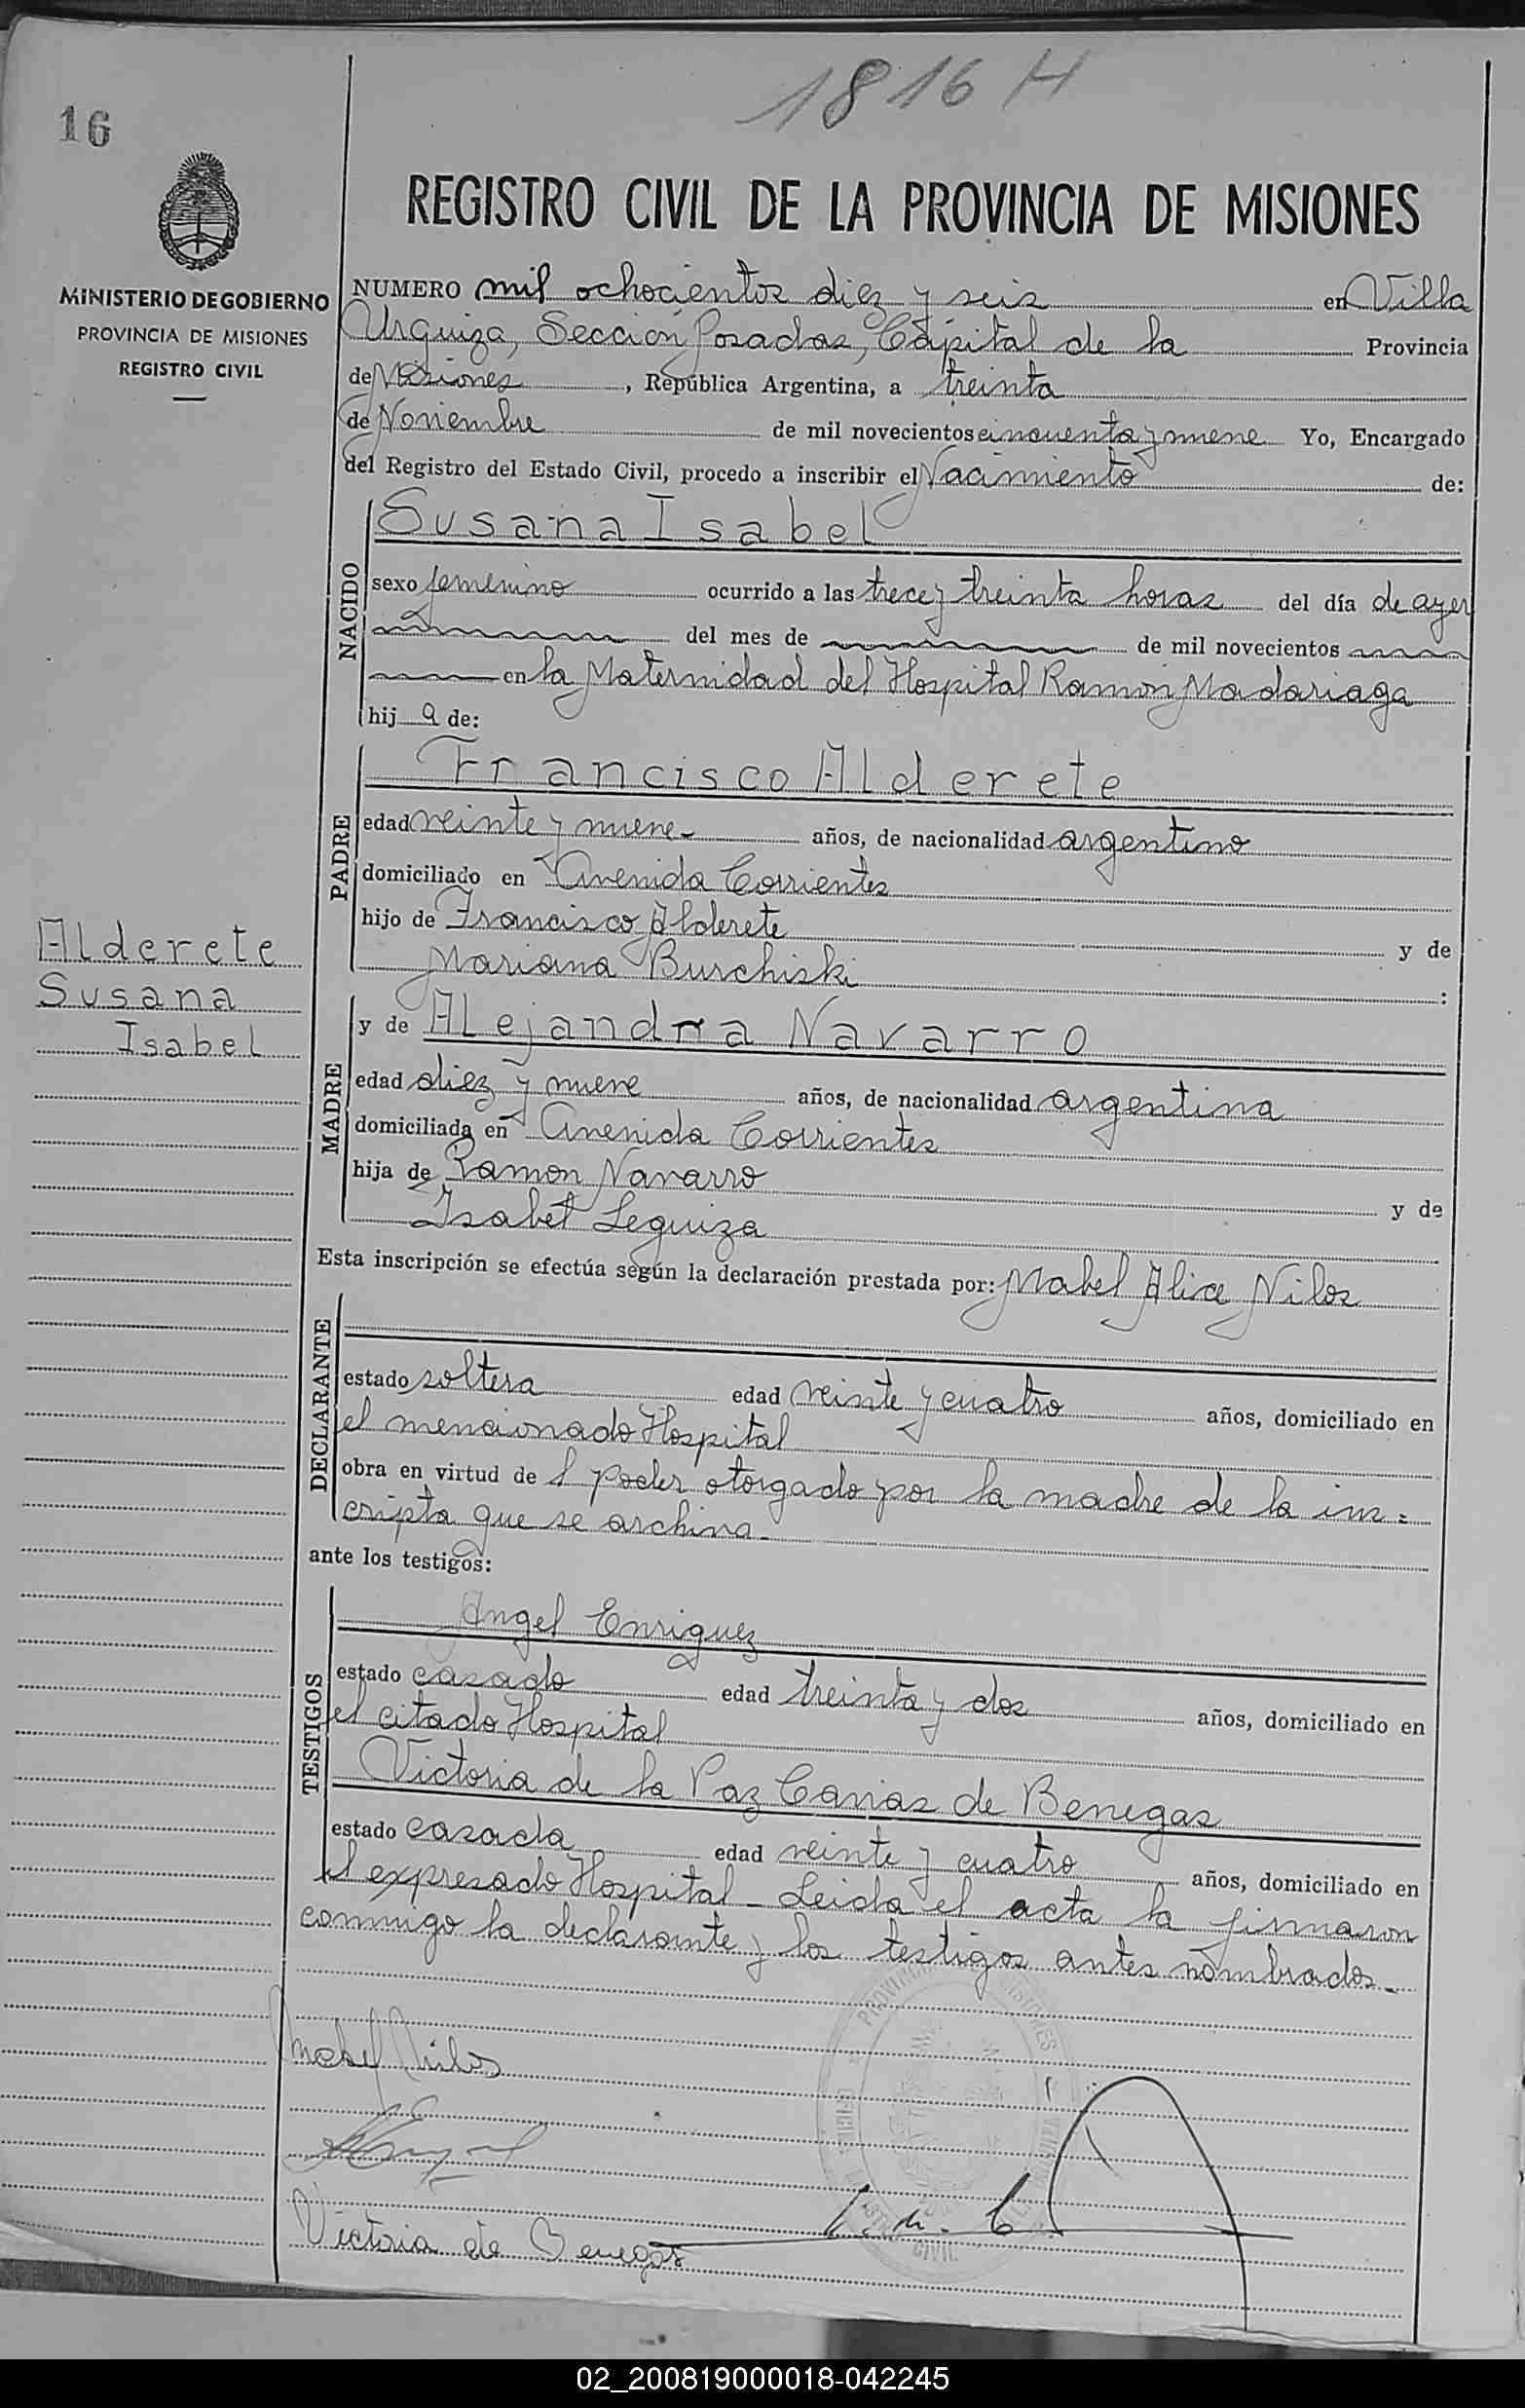 1816 H
16
REGISTRO CIVIL DE LA PROVINCIA DE MISIONES
MINISTERIO DE GOBIERNO
PROVINCIA DE MISIONES
REGISTRO CIVIL
NUMERO mil ochocientos diez y seis en Villa
Urquiza, Sección Posadas, Capital de la Provincia
de Misiones, República Argentina, a treinta
de Noviembre de mil novecientos cincuenta y nueve Yo, Encargado
del Registro del Estado Civil, procedo a inscribir el Nacimiento de:
NACIDO
Susana Isabel
sexo femenino ocurrido a las trece y treinta horas del día de ayer
del mes de de mil novecientos
en la Maternidad del Hospital Ramón Madariaga
hij a de:
PADRE
Francisco Alderete
edad veinte y nueve años, de nacionalidad argentino
domiciliado en Avenida Corrientes
hijo de Francisco Alderete y de
Mariana Burchiski :
Alderete
Susana
Isabel
MADRE
y de Alejandra Navarro
edad diez y nueve años, de nacionalidad argentina
domiciliada en Avenida Corrientes
hija de Ramon Navarro y de
Isabel Leguiza
Esta inscripción se efectúa según la declaración prestada por: Mabel Alice Nilos
DECLARANTE
estado soltera edad veinte y cuatro años, domiciliado en
el mencionado Hospital
obra en virtud de l poder otorgado por la madre de la ins=
cripta que se archiva.
ante los testigos:
TESTIGOS
Angel Enriquez
estado casado edad treinta y dos años, domiciliado en
el citado Hospital
Victoria de la Paz Canias de Benegas
estado casada edad veinte y cuatro años, domiciliado en
el expresado Hospital - Leida el acta la firmaron
conmigo la declarante y los testigos antes nombrados.
Mabel Nilos
Victoria de Benegas
CIVIL
02_200819000018-042245